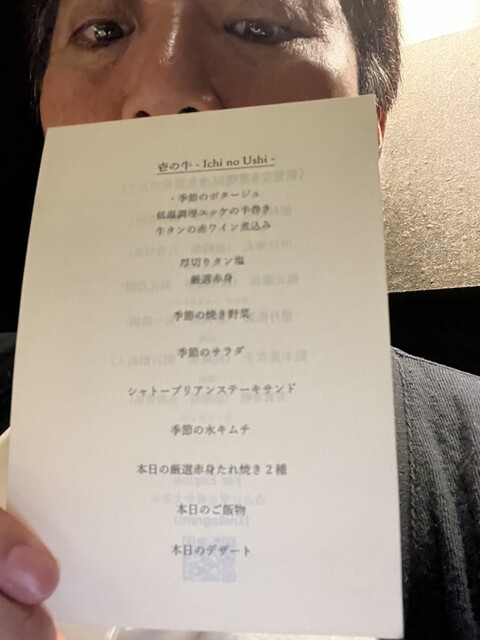 壱の牛 - Ichi no Ushi -
・季節のポタージュ
低温調理ユッケの手巻き
牛タンの赤ワイン煮込み
厚切りタン塩
厳選赤身
季節の焼き野菜
季節のサラダ
シャトーブリアンステーキサンド
季節の水キムチ
本日の厳選赤身たれ焼き2種
本日のご飯物
本日のデザート